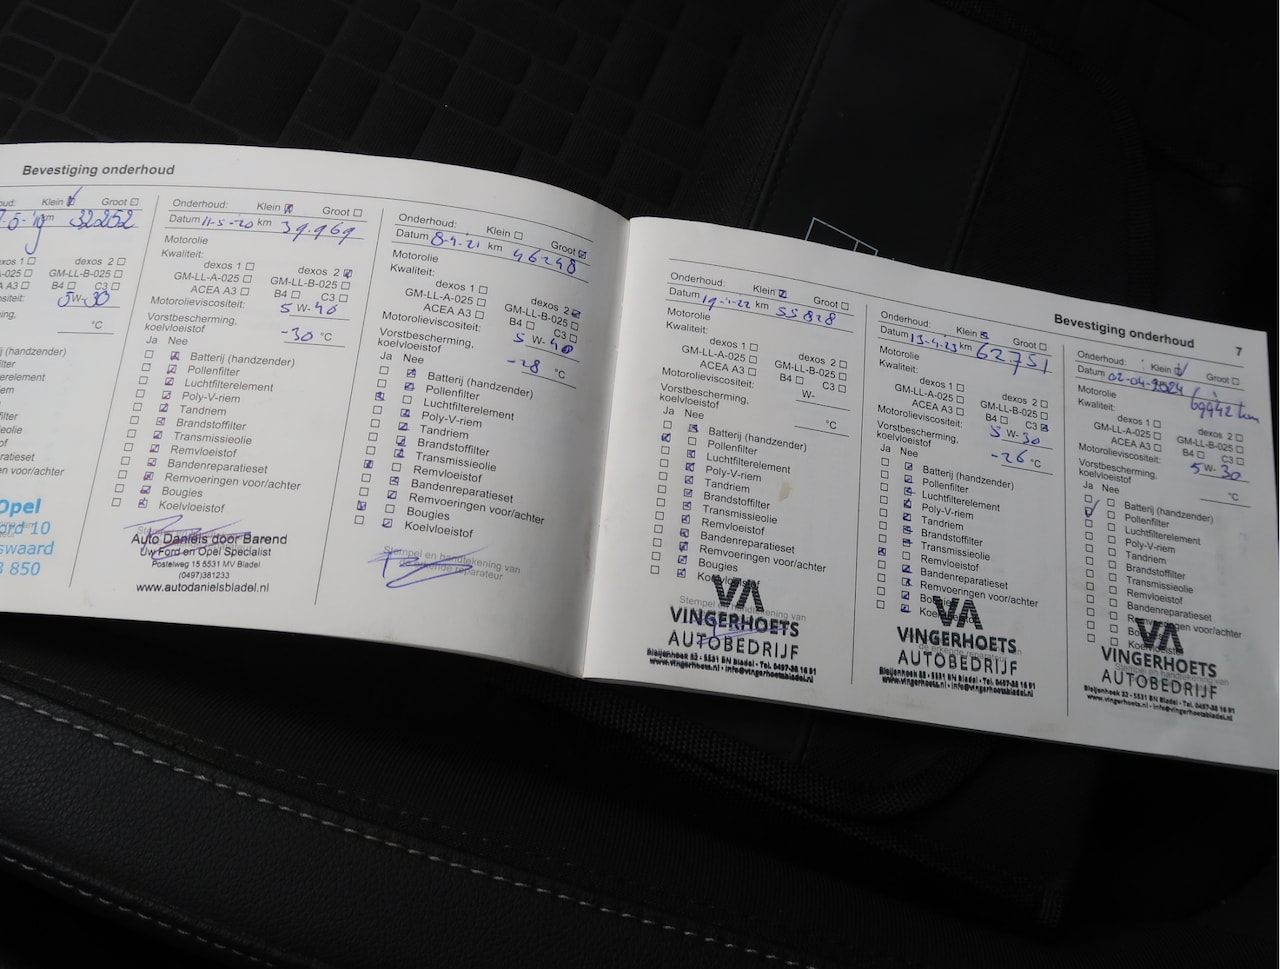 Bevestiging onderhoud
Klein ☑ Groot ☐
32252
dexos 2 ☐
GM-LL-A-025 ☐ GM-LL-B-025 ☐
ACEA A3 ☐ B4 ☐ C3 ☐
5W-30
°C
Opel
Onderhoud: Klein ☒ Groot ☐
Datum 11-5-20 km 39.969
Motorolie
Kwaliteit:
dexos 1 ☐ dexos 2 ☑
GM-LL-A-025 ☐ GM-LL-B-025 ☐
ACEA A3 ☐ B4 ☐ C3 ☐
Motorolieviscositeit: 5 W-40
Vorstbescherming,
koelvloeistof -30 °C
Ja Nee
Batterij (handzender)
Pollenfilter
Luchtfilterelement
Poly-V-riem
Tandriem
Brandstoffilter
Transmissieolie
Remvloeistof
Bandenreparatieset
Remvoeringen voor/achter
Bougies
Koelvloeistof
Auto Daniels door Barend
Uw Ford en Opel Specialist
Postelweg 15 5531 MV Bladel
(0497)381233
www.autodanielsbladel.nl
Onderhoud: Klein ☐ Groot ☑
Datum 8-4-21 km 46248
Motorolie
Kwaliteit:
dexos 1 ☐ dexos 2 ☑
GM-LL-A-025 ☐ GM-LL-B-025 ☐
ACEA A3 ☐ B4 ☐ C3 ☐
Motorolieviscositeit: 5 W-40
Vorstbescherming,
koelvloeistof -28 °C
Ja Nee
Batterij (handzender)
Pollenfilter
Luchtfilterelement
Poly-V-riem
Tandriem
Brandstoffilter
Transmissieolie
Remvloeistof
Bandenreparatieset
Remvoeringen voor/achter
Bougies
Koelvloeistof
Stempel en handtekening van
de erkende reparateur
Onderhoud: Klein ☑ Groot ☐
Datum km 55828
Motorolie
Kwaliteit:
dexos 1 ☐ dexos 2 ☐
GM-LL-A-025 ☐ GM-LL-B-025 ☐
ACEA A3 ☐ B4 ☐ C3 ☐
Motorolieviscositeit: W-
Vorstbescherming,
koelvloeistof °C
Ja Nee
Batterij (handzender)
Pollenfilter
Luchtfilterelement
Poly-V-riem
Tandriem
Brandstoffilter
Transmissieolie
Remvloeistof
Bandenreparatieset
Remvoeringen voor/achter
Bougies
Koelvloeistof
Stempel en handtekening van
VINGERHOETS
AUTOBEDRIJF
Bleijenhoek 32 - 5531 BN Bladel - Tel. 0497-38 16 91
www.vingerhoets.nl - info@vingerhoetsbladel.nl
Bevestiging onderhoud 7
Onderhoud: Klein ☒ Groot ☐
Datum 13-4-23 km 62751
Motorolie
Kwaliteit:
dexos 1 ☐ dexos 2 ☐
GM-LL-A-025 ☐ GM-LL-B-025 ☐
ACEA A3 ☐ B4 ☐ C3 ☒
Motorolieviscositeit: 5 W-30
Vorstbescherming,
koelvloeistof -26 °C
Ja Nee
Batterij (handzender)
Pollenfilter
Luchtfilterelement
Poly-V-riem
Tandriem
Brandstoffilter
Transmissieolie
Remvloeistof
Bandenreparatieset
Remvoeringen voor/achter
Bougies
Koelvloeistof
VINGERHOETS
AUTOBEDRIJF
Bleijenhoek 32 - 5531 BN Bladel - Tel. 0497-38 16 91
www.vingerhoets.nl - info@vingerhoetsbladel.nl
Onderhoud: Klein ☑ Groot ☐
Datum 02-04-2024 69942 km
Motorolie
Kwaliteit:
dexos 1 ☐ dexos 2 ☐
GM-LL-A-025 ☐ GM-LL-B-025 ☐
ACEA A3 ☐ B4 ☐ C3 ☐
Motorolieviscositeit: 5 W-30
Vorstbescherming,
koelvloeistof °C
Ja Nee
Batterij (handzender)
Pollenfilter
Luchtfilterelement
Poly-V-riem
Tandriem
Brandstoffilter
Transmissieolie
Remvloeistof
Bandenreparatieset
Remvoeringen voor/achter
VINGERHOETS
AUTOBEDRIJF
Bleijenhoek 32 - 5531 BN Bladel - Tel. 0497-38 16 91
www.vingerhoets.nl - info@vingerhoetsbladel.nl